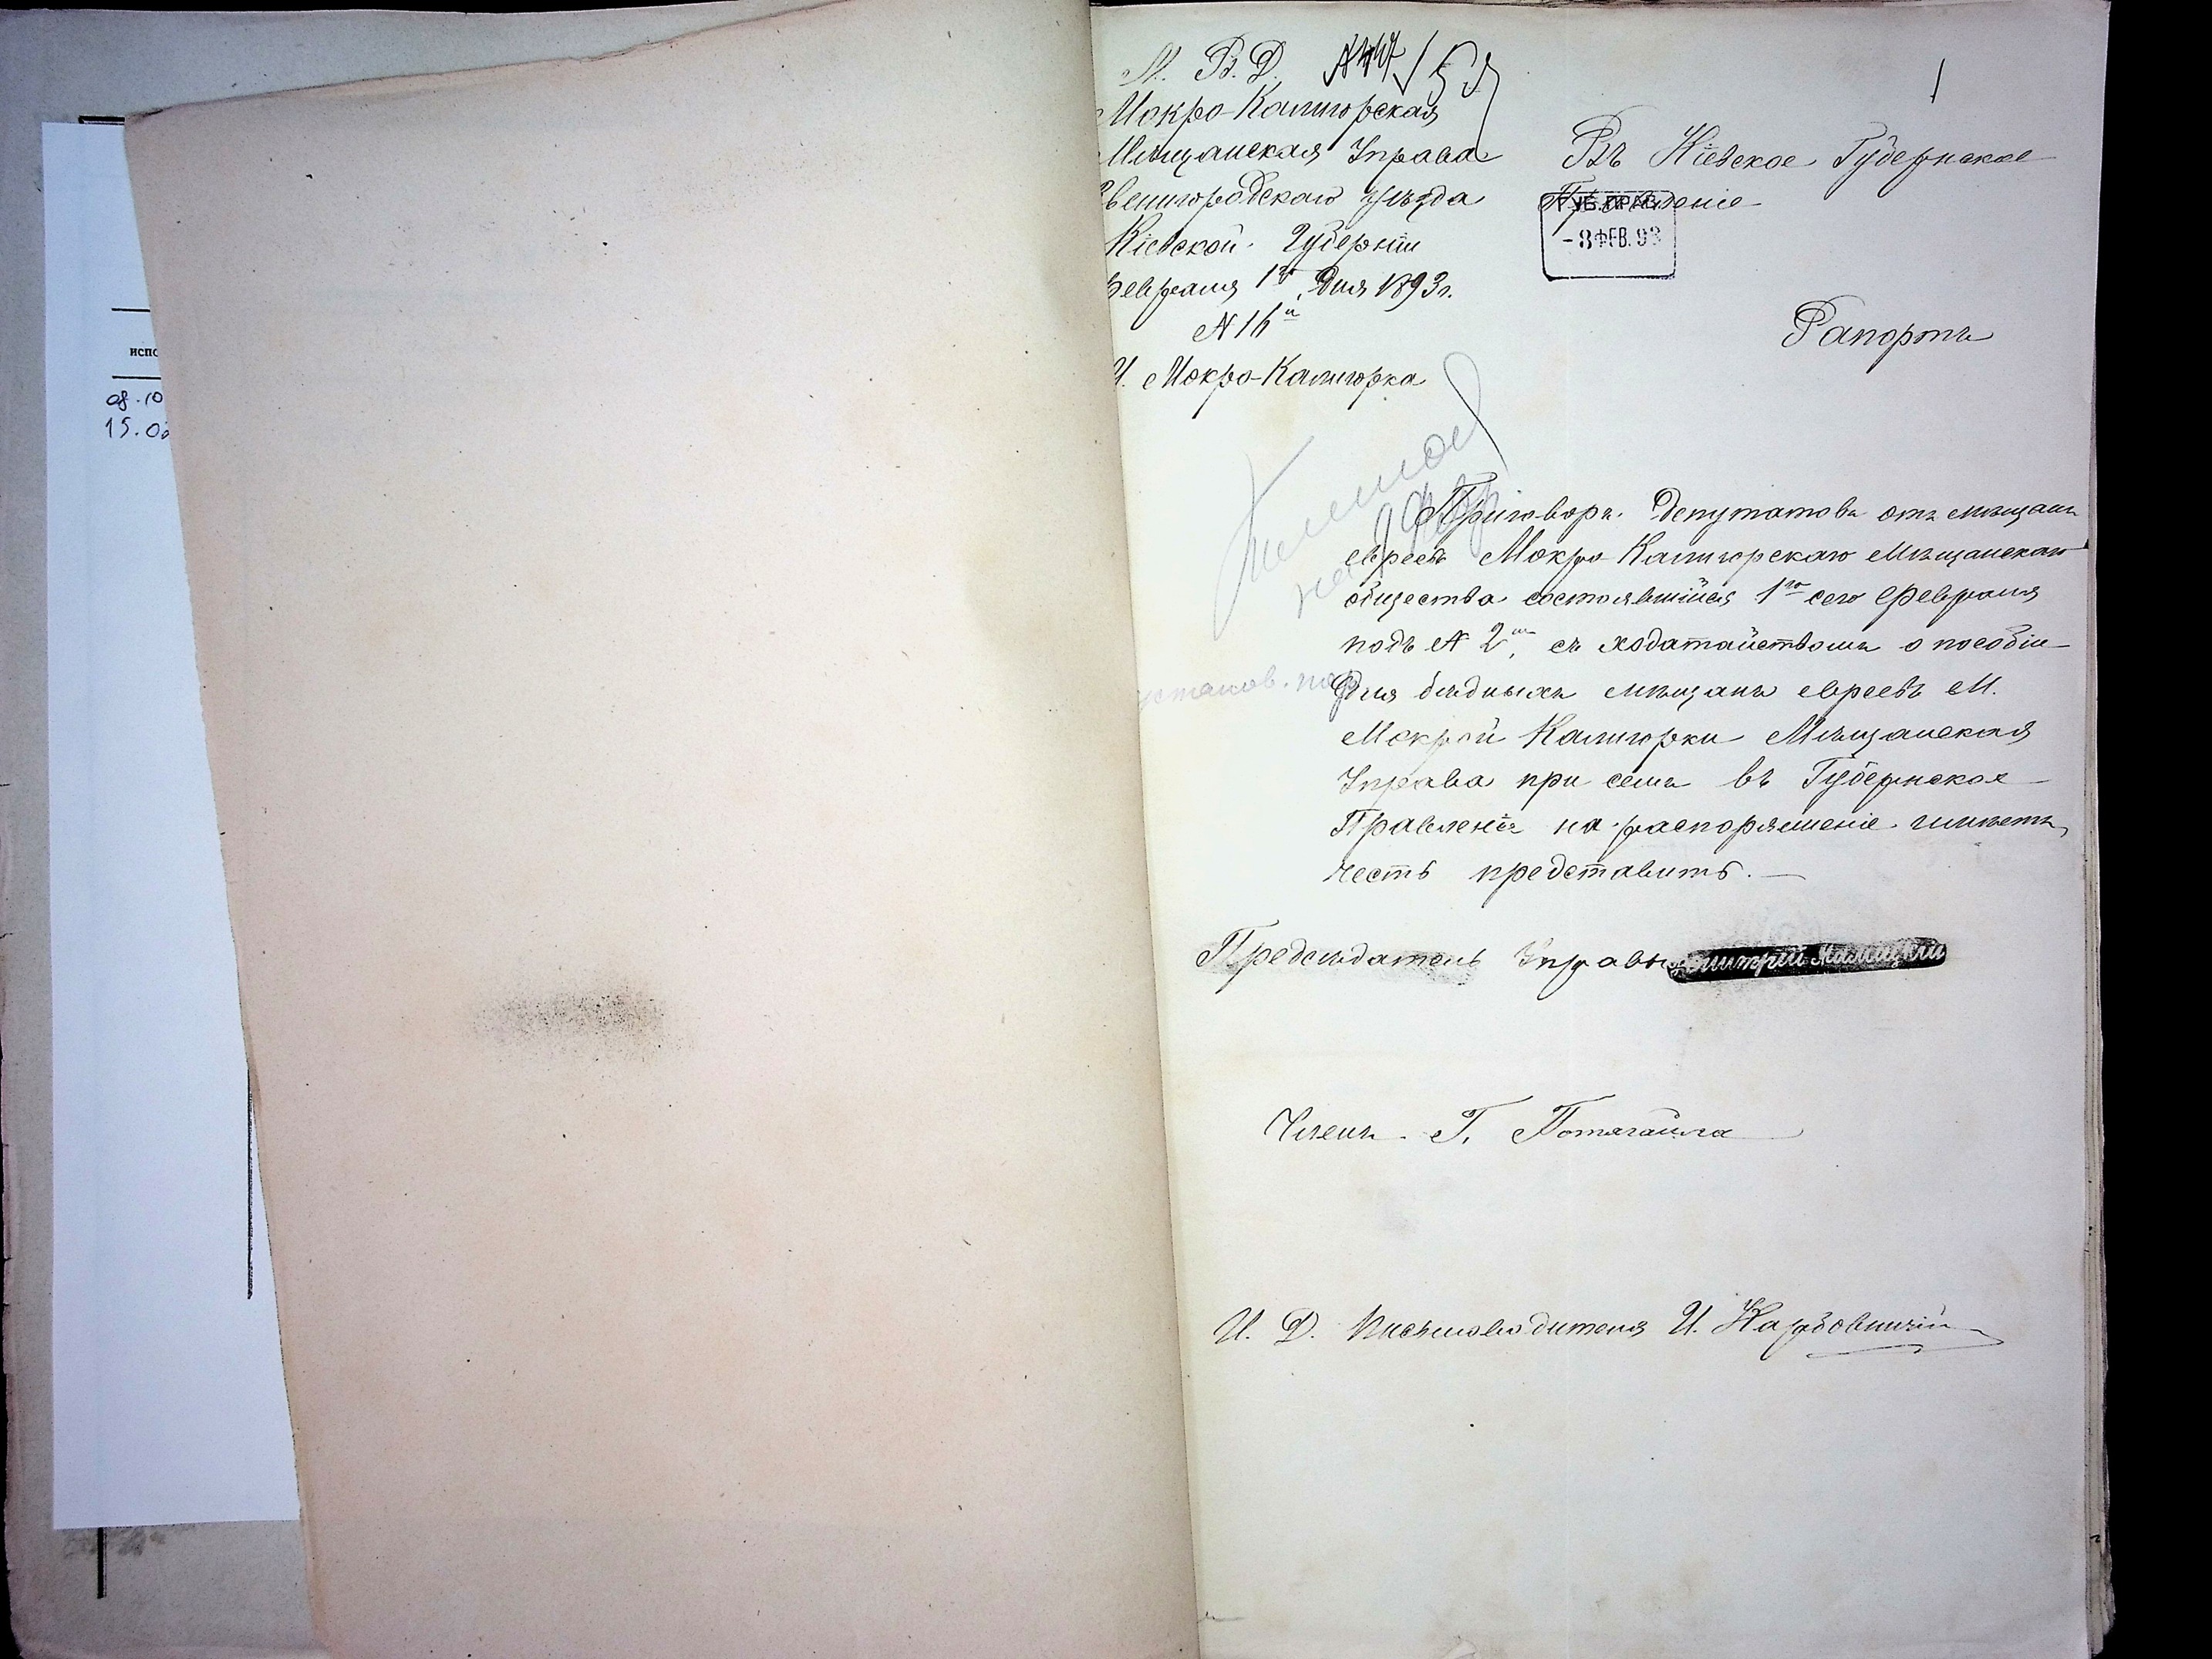 испо
08.10
15.02
М. В. Д.
Мокро-Калигорская
Мѣщанская Управа
Звенигородскаго уѣзда
Кіевской Губерніи
Февраля 1го Дня 1893 г.
N 16й
М. Мокро-Калигорка
1
Въ Кіевское Губернское
Правленіе
ГУБ. ПРАВ.
-8 ФЕВ. 93
Рапортъ
Приговоръ Депутатовъ отъ мѣщанъ
евреевъ Мокро Калигорскаго Мѣщанскаго
общества состоявшійся 1го сего Февраля
подъ N 2м, съ ходатайствомъ о пособіи
установ. пор
Для бѣдныхъ мѣщанъ евреевъ М.
Мокрой Калигорки Мѣщанская
Управа при семъ въ Губернское
Правленіе на распоряженіе имѣетъ
честь представить.
Предсѣдатель Управы
Членъ Г. Потагайла
И. Д. Письмоводителя И.